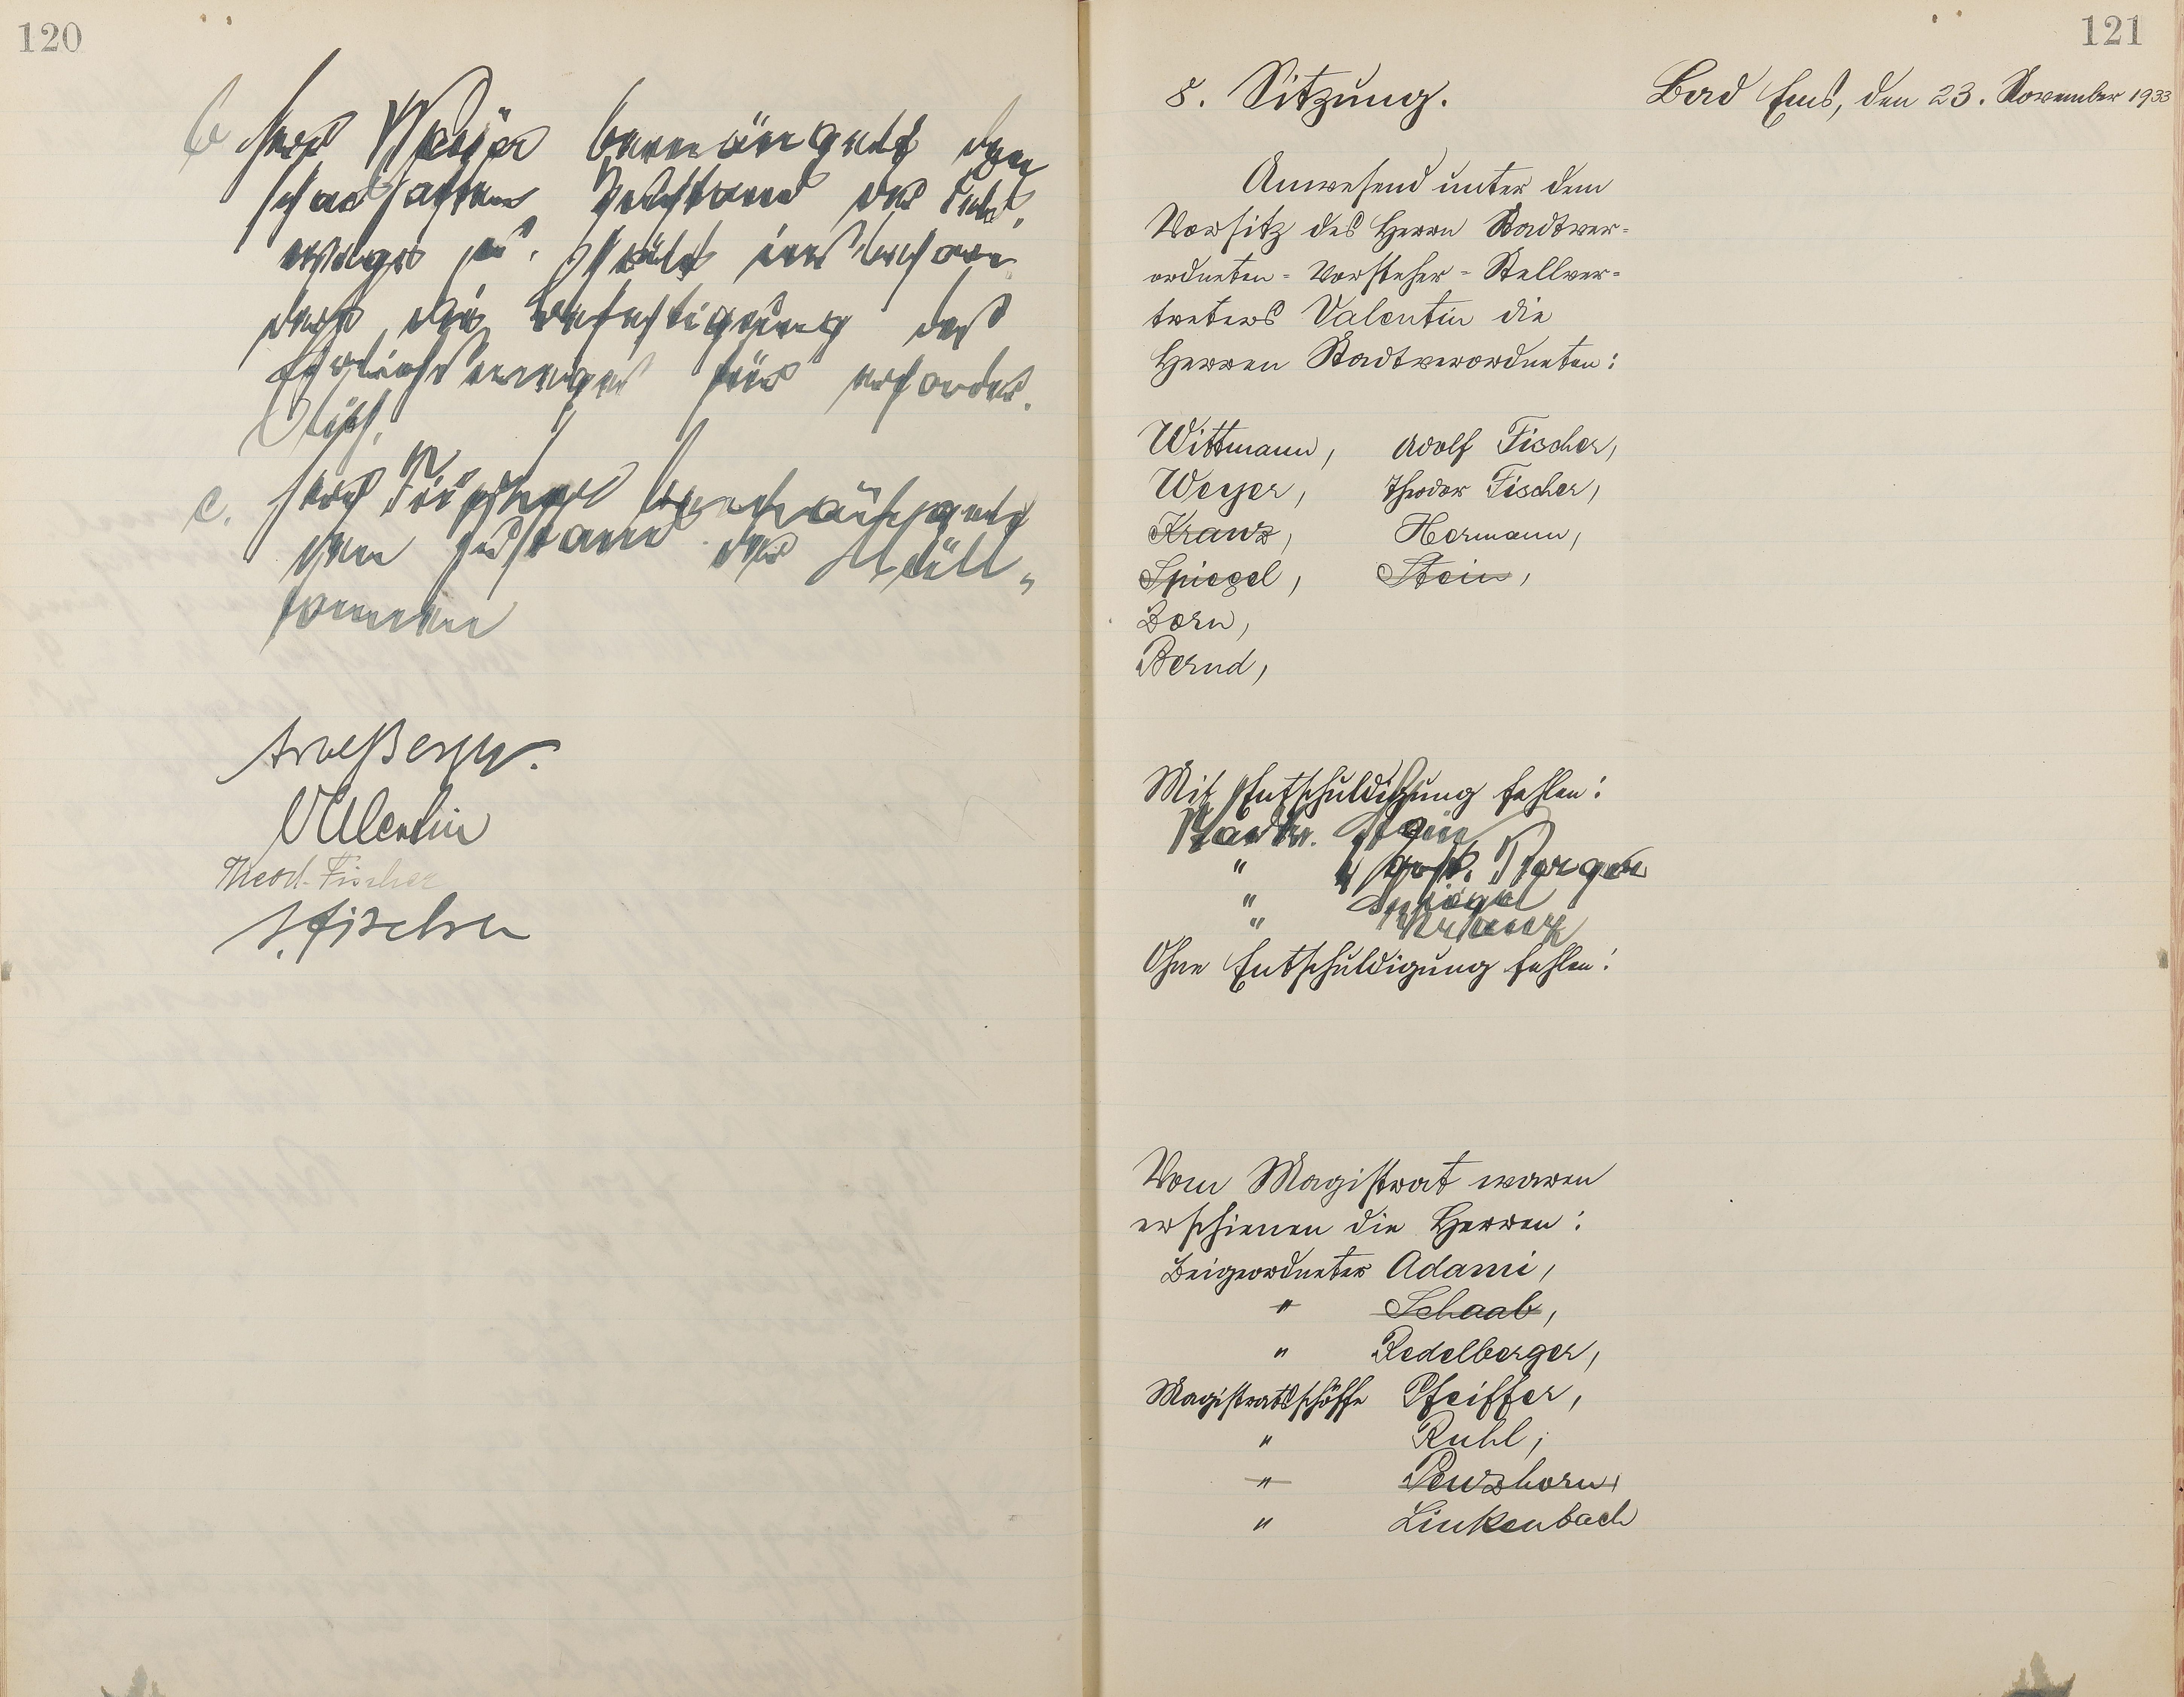 120
b Herr Weyer bemängelt den
schadhaften Zustand der Feld-
wege pp. Hält insbeson-
dere die Befestigung des
für erforder-
lich.
c. Herr Fischer bemängelt
den Zustand der Müll-
tonnen
Valentin
Theod. Fischer
A. Fischer
121
8. Sitzung.
Bad Ems, den 23. November 1933
Anwesend unter dem
Vorsitz des Herrn Stadtver-
ordneten-Vorsteher-Stellver-
treters Valentin die
Herren Stadtverordneten:
Wittmann, Adolf Fischer,
Weyer, Theodor Fischer,
Kranz, Hermann,
Spiegel, Stein,
Born,
Bernd,
Mit Entschuldigung fehlen:
Stadtv. Stein
"
" Spiegel
" Kranz
Ohne Entschuldigung fehlen:
Vom Magistrat waren
erschienen die Herren:
Beigeordneter Adami,
" Schaab,
" Redelberger,
Magistratsschöffe Pfeiffer,
" Ruhl,
" Penzhorn,
" Linkenbach